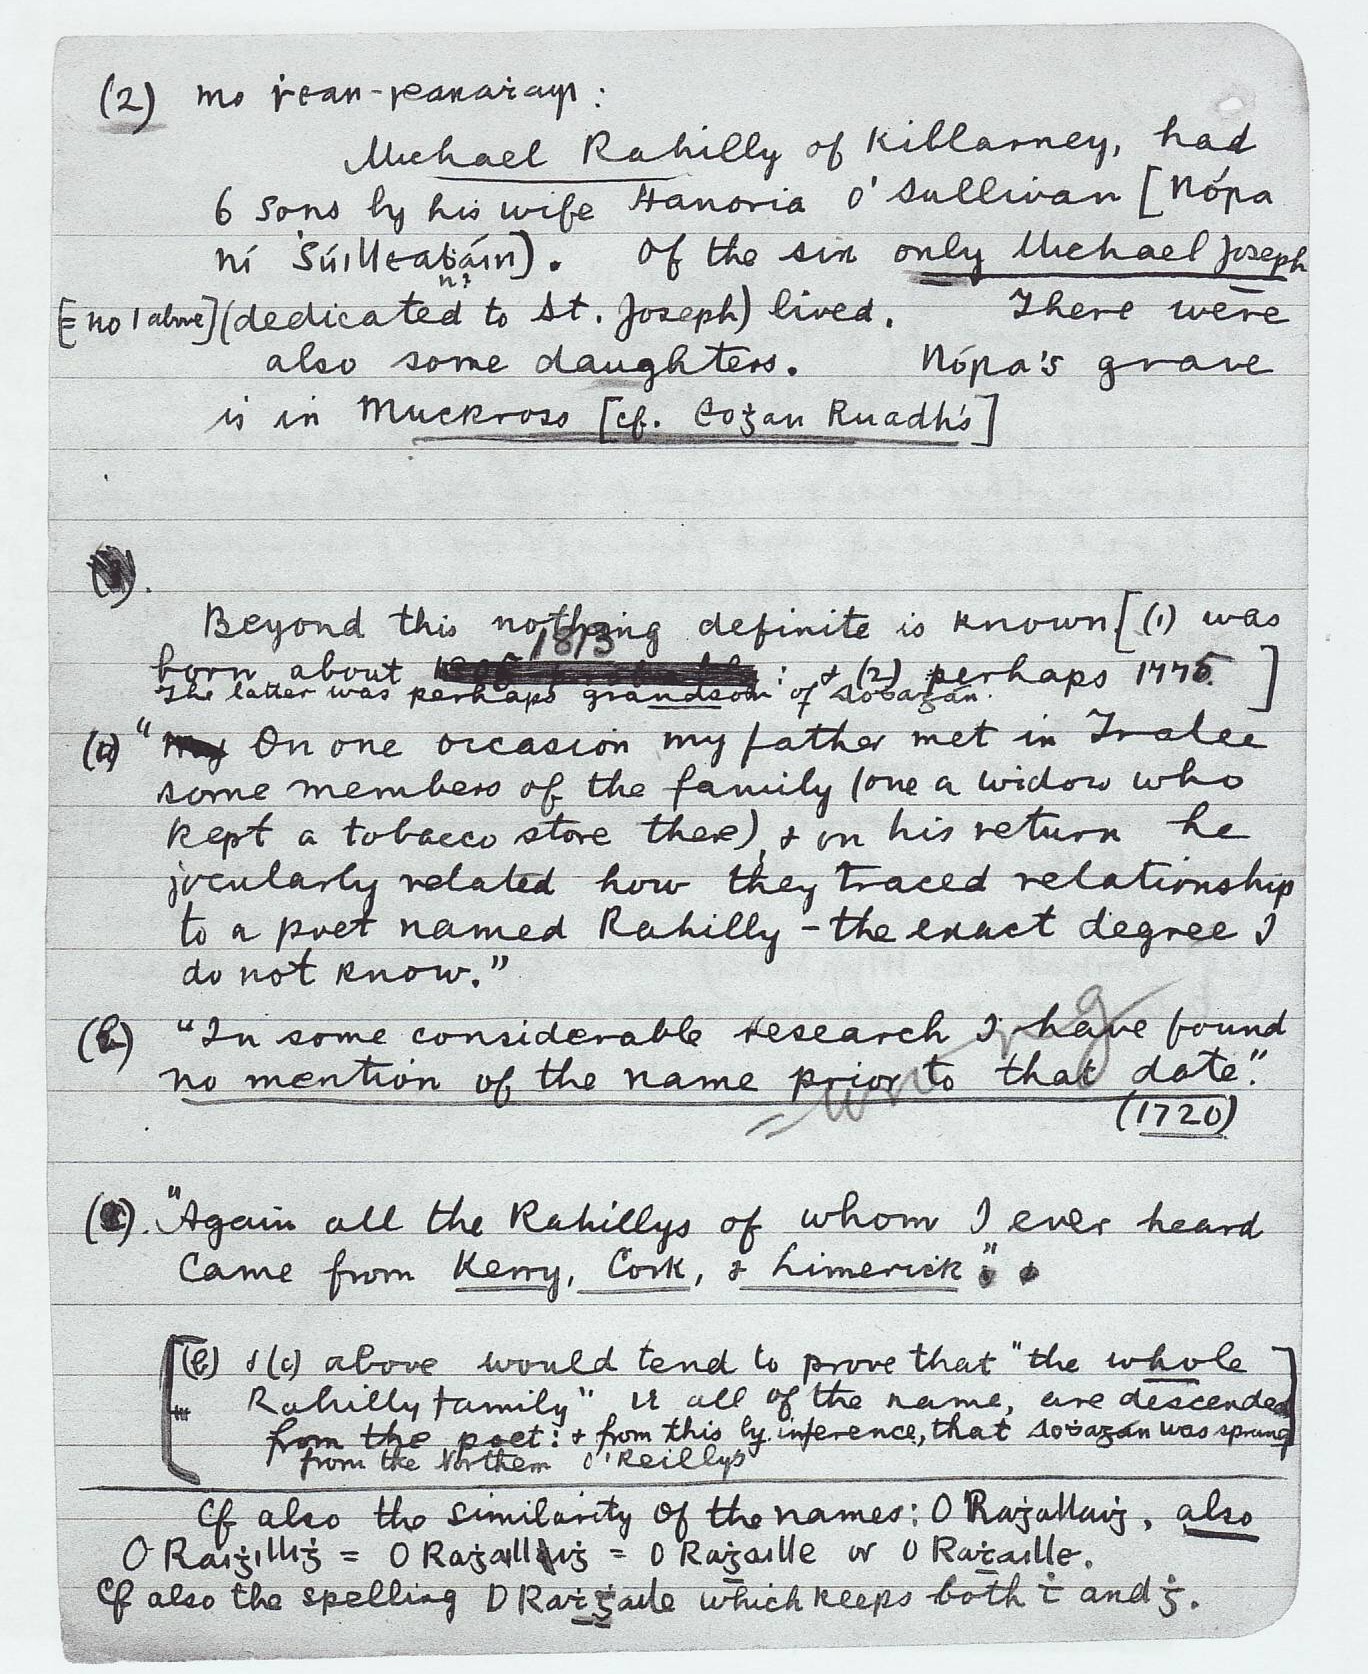 (2) mo ṡean-ṡeanaṫair:
Michael Rahilly of Killarney, had
6 sons by his wife Hanoria O'Sullivan [Nóra
ní Súilleaḃáin]. Of the six only Michael Joseph
[= no 1 above] (dedicated to St. Joseph) lived. There were
also some daughters. Nóra's grave
is in Muckross [cf. Eoġan Ruadh's]
Beyond this nothing definite is known [(1) was
born about 1813 : & (2) perhaps 1775. ]
The latter was perhaps grandson of Aoḋagán.
(a) " On one occasion my father met in Tralee
some members of the family (one a widow who
kept a tobacco store there), & on his return he
jocularly related how they traced relationship
to a poet named Rahilly – the exact degree I
do not know."
(b) "In some considerable research I have found
no mention of the name prior to that date."
= wrong
(1720)
(c). "Again all the Rahillys of whom I ever heard
came from Kerry, Cork, & Limerick".
[(b) & (c) above would tend to prove that "the whole
Rahilly family" is all of the name, are descended
from the poet: & from this by inference, that Aoḋagán was sprung
from the Northern O'Reillys ]
Cf also the similarity of the names: O Raġallaiġ, also
O Raiġilliġ = O Raġallaiġ = O Raġaille or O Raṫaille.
Cf also the spelling O Raṫġaile which keeps both ṫ and ġ.